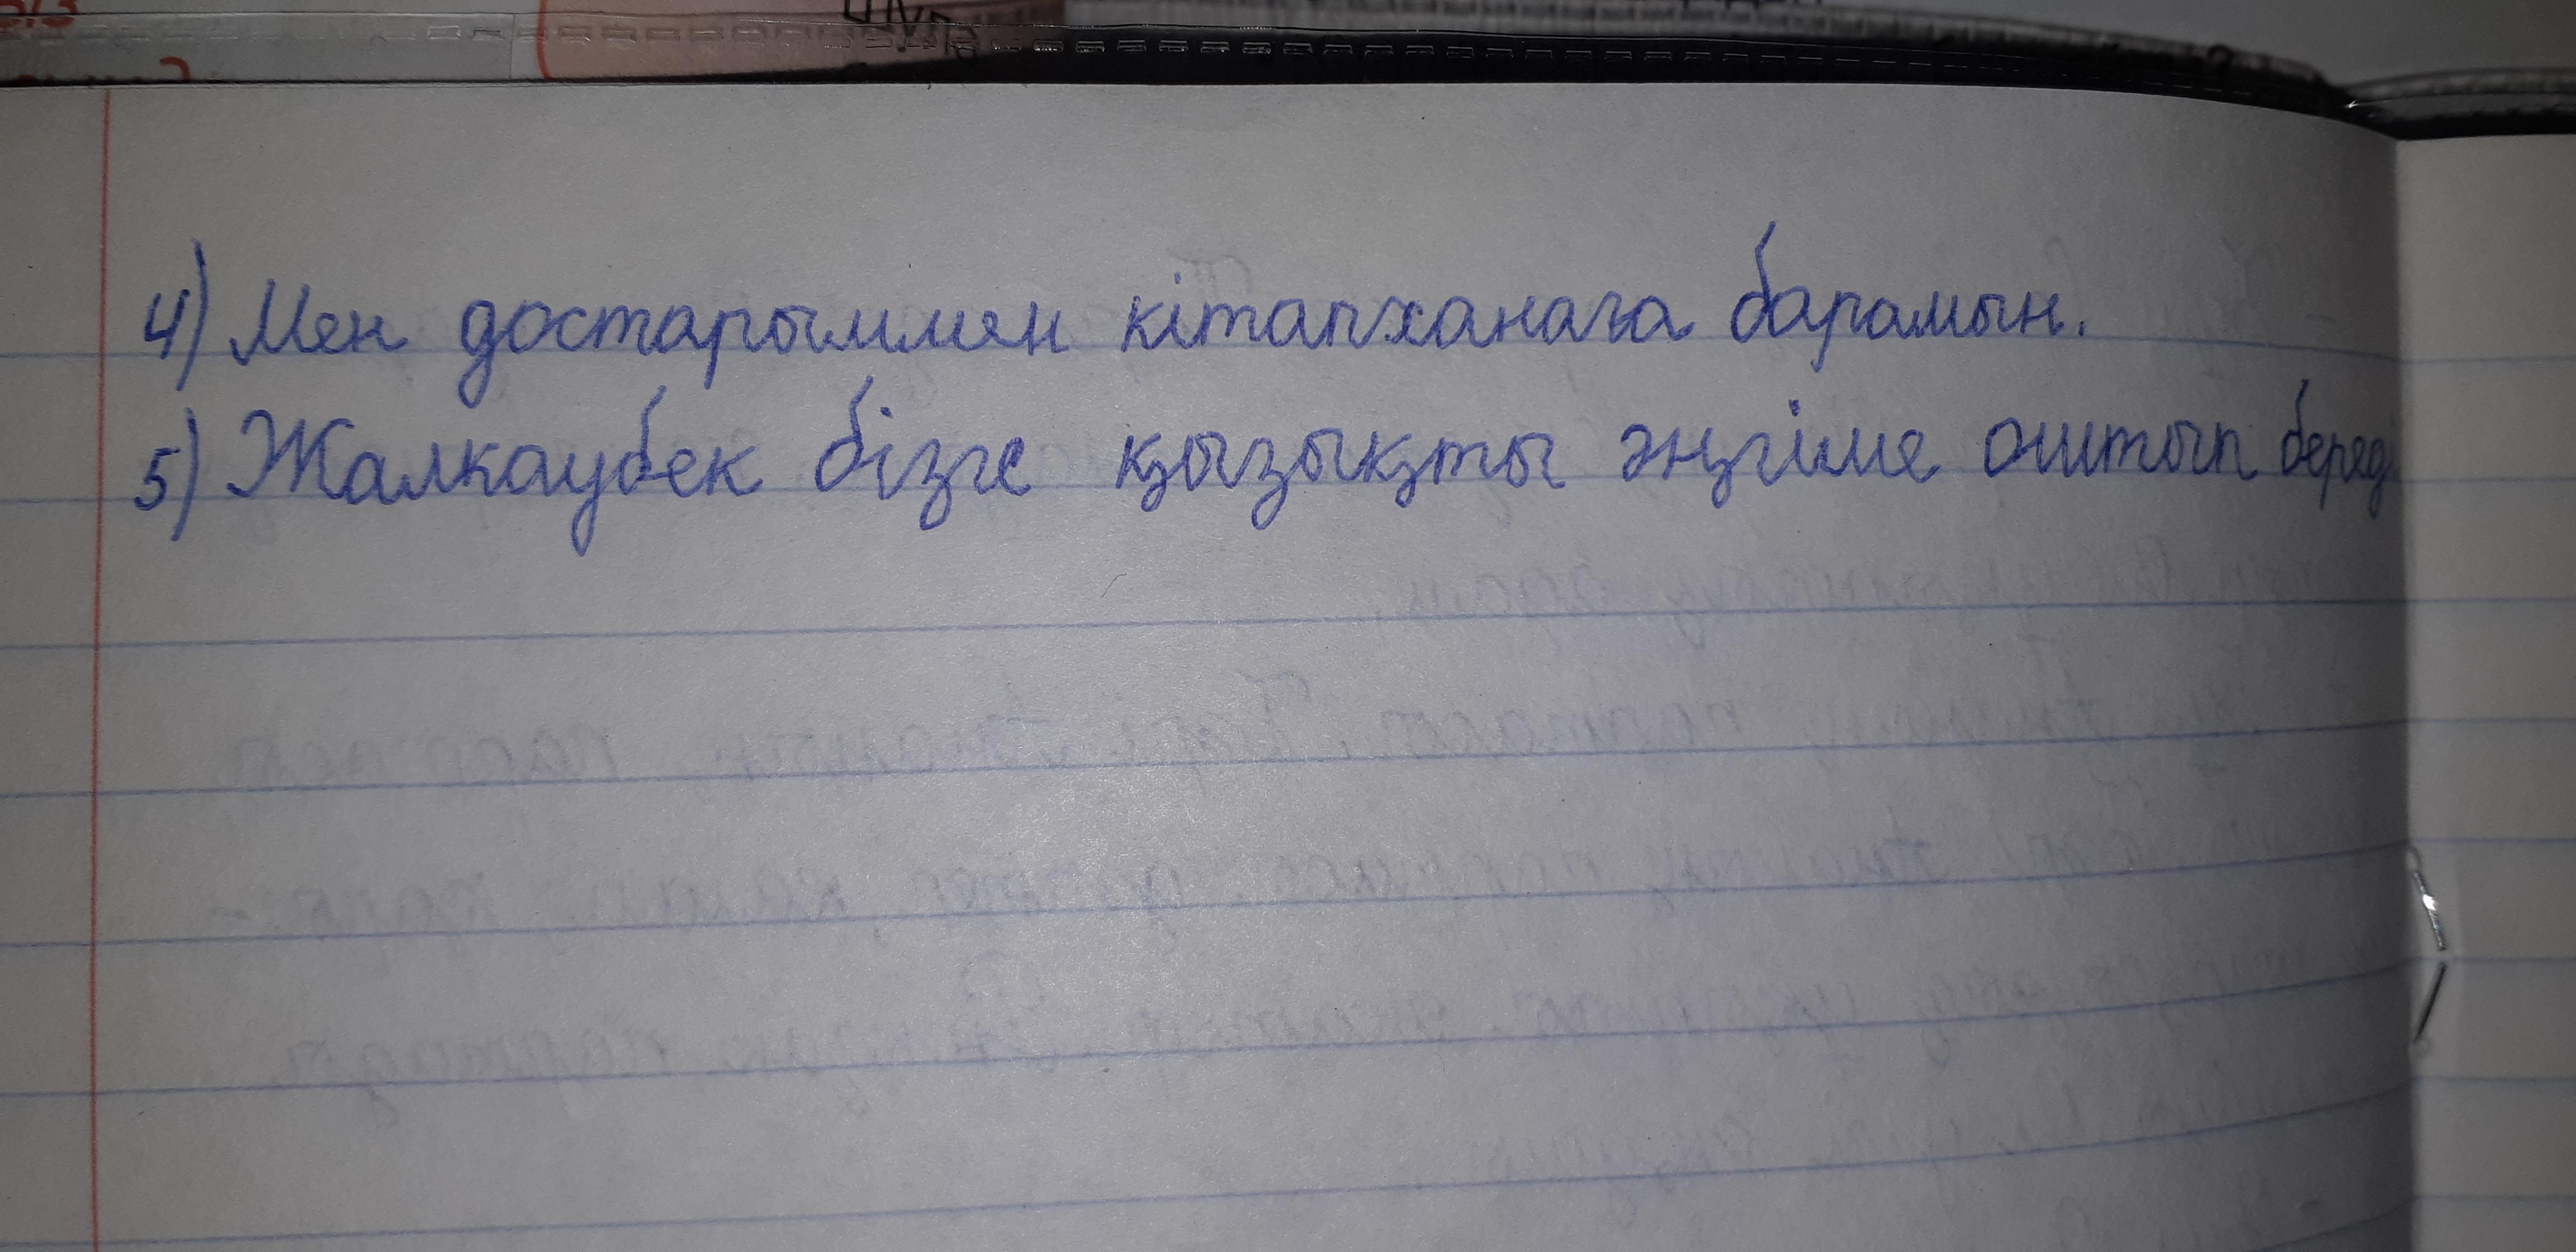 4) Мен достарыммен кітапханаға барамын.
5) Жалкаубек бізге қызықты әңгіме оштып береді